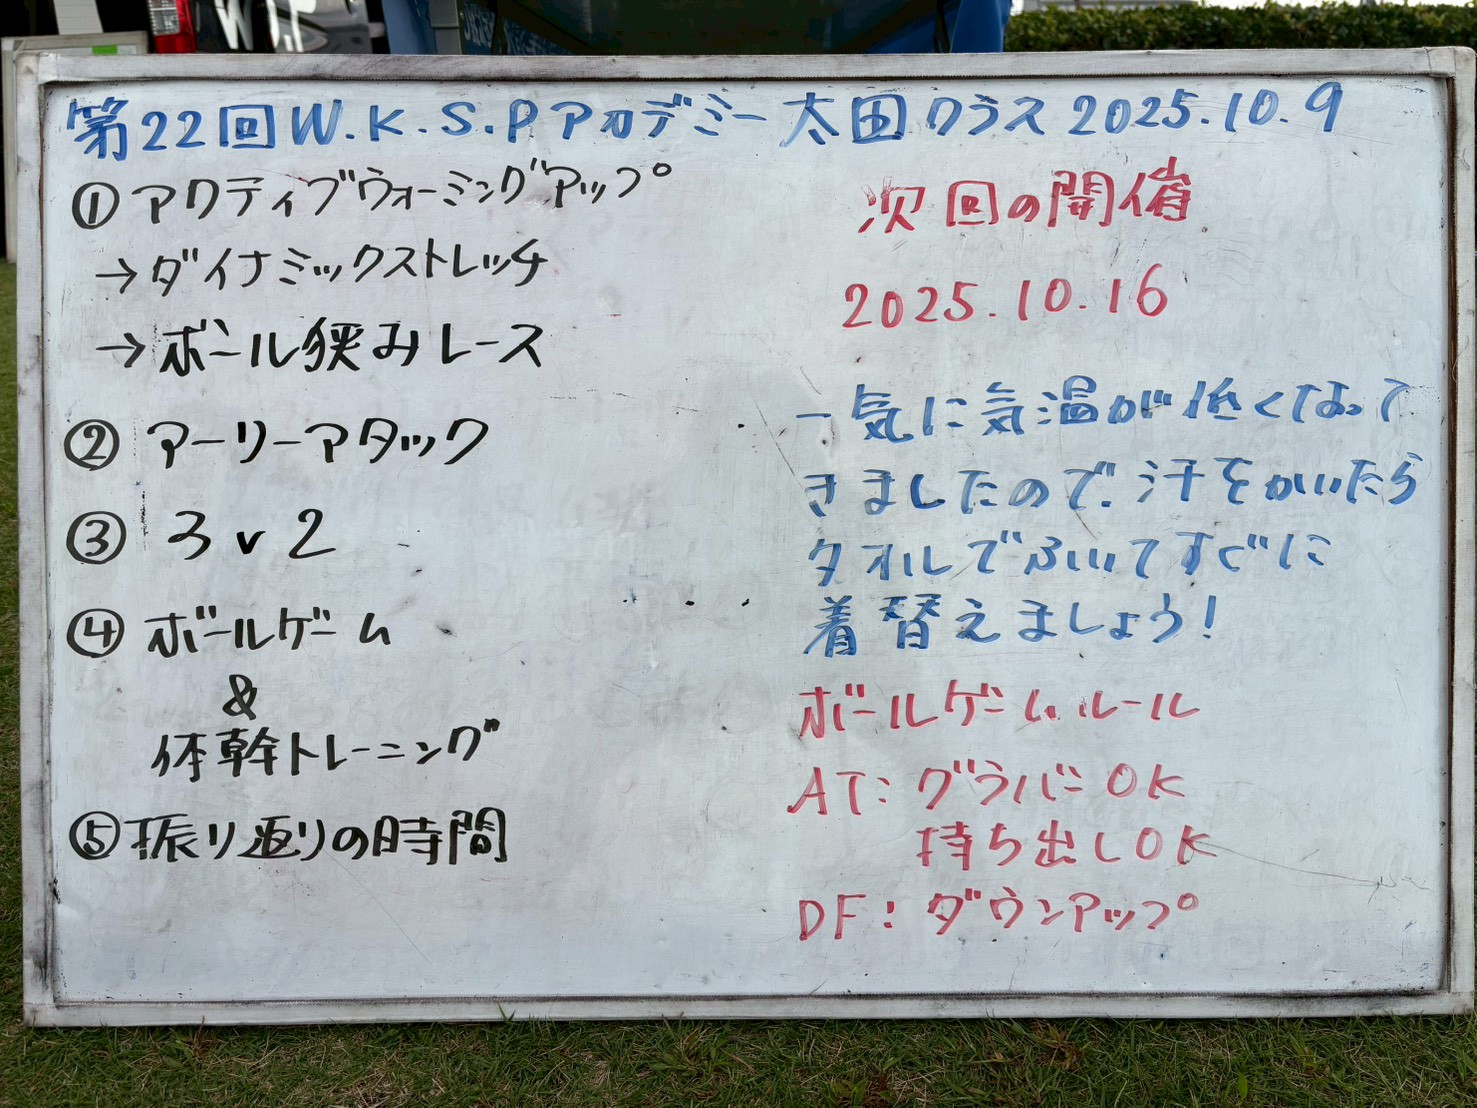 第22回W.K.S.Pアカデミー太田クラス2025.10.9
①アクティブウォーミングアップ
→ダイナミックストレッチ
→ボール狭みレース
②アーリーアタック
③3v2
④ボールゲーム
&
体幹トレーニング
⑤振り返りの時間
次回の開催
2025.10.16
一気に気温が低くなって
きましたので、汗をかいたら
タオルでふいてすぐに
着替えましょう!
ボールゲームルール
AT:グラバーOK
持ち出しOK
DF:ダウンアップ